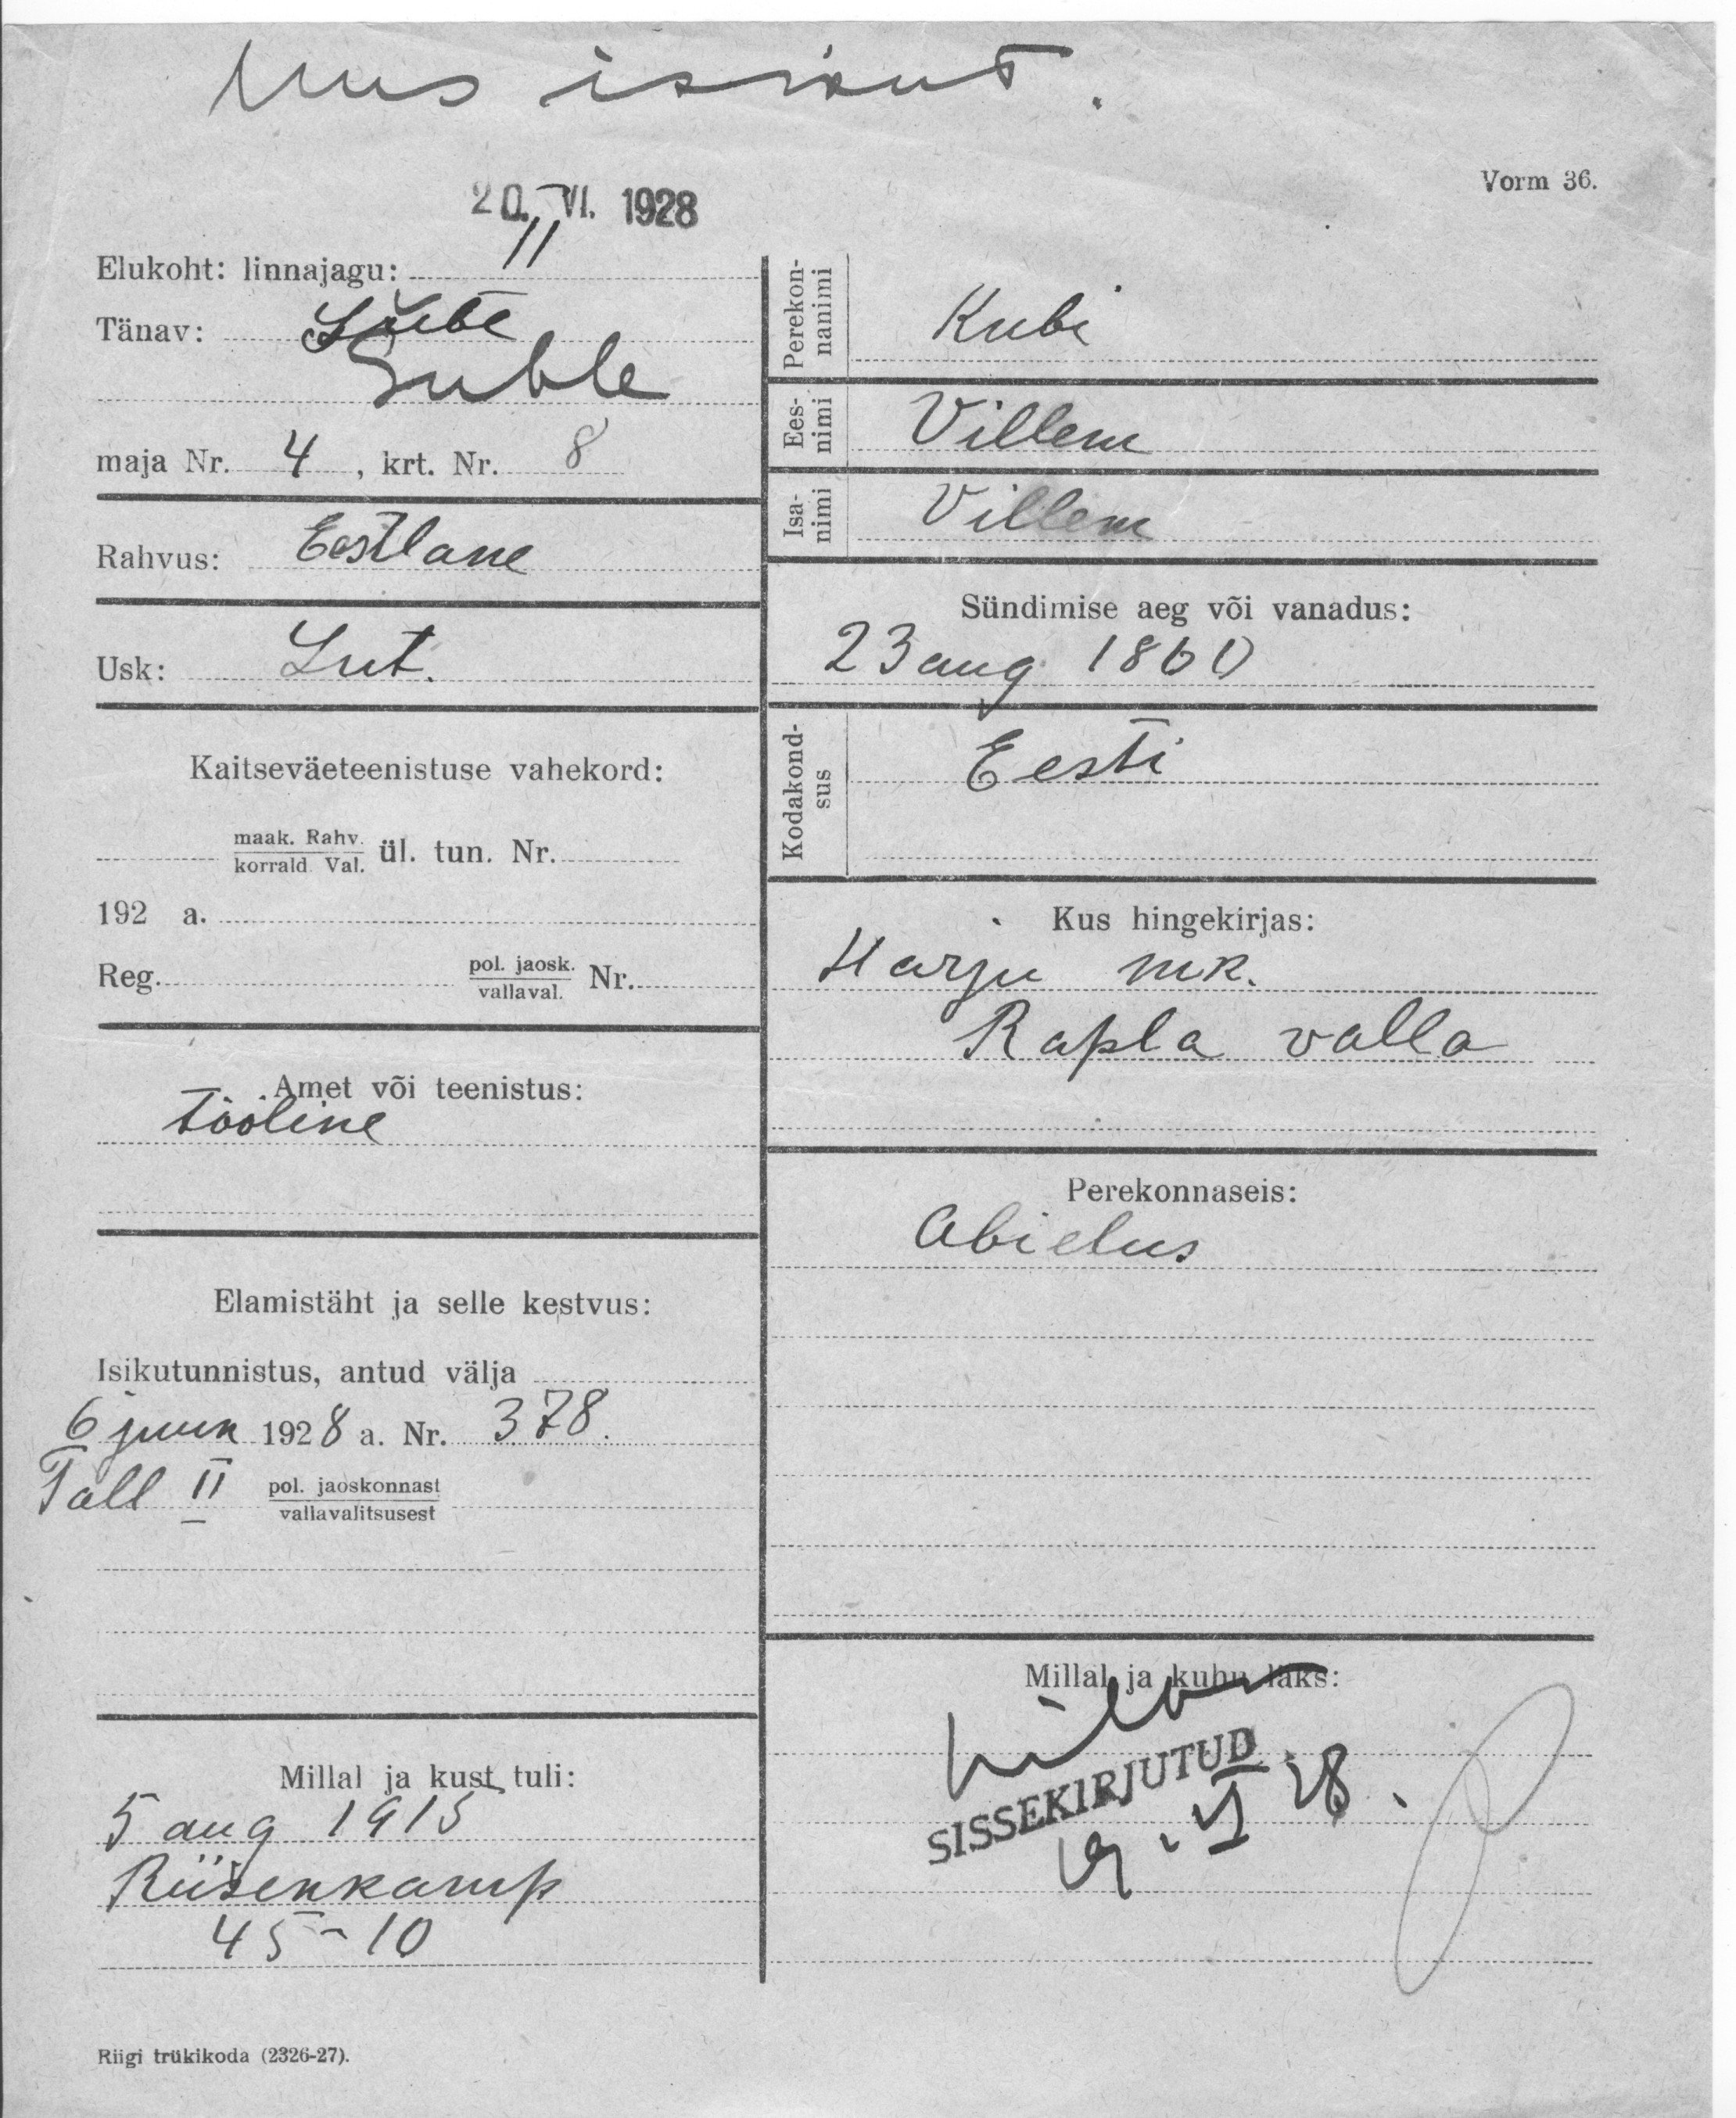 Uus isikut.
Vorm 36.
20. VI. 1928
Elukoht: linnajagu: II
Tänav:
Suble
maja Nr. 4, krt. Nr. 8
Rahvus: Eestlane
Usk: Lut.
Kaitseväeteenistuse vahekord:
maak. Rahv.
korrald. Val. ül. tun. Nr.
192 a.
Reg. pol. jaosk.
vallaval. Nr.
Amet või teenistus:
Tööline
Elamistäht ja selle kestvus:
Isikutunnistus, antud välja
6 juun 1928 a. Nr. 378.
Tall II pol. jaoskonnast
vallavalitsusest
Millal ja kust tuli:
5 aug 1915
Rüüsenkamp
45-10
Riigi trükikoda (2326-27).
Perekonnanimi Kubi
Eesnimi Villem
Isanimi Villem
Sündimise aeg või vanadus:
23 aug 1860
Kodakondsus Eesti
Kus hingekirjas:
Harju mk.
Rapla valla
Perekonnaseis:
Abielus
Millal ja kuhu läks:
SISSEKIRJUTUD
19. VI 28.